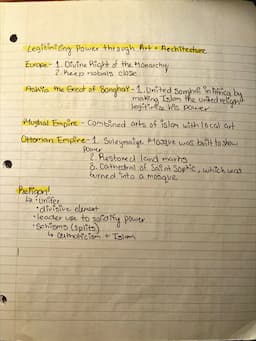 Legitimizing Power through Art + Architecture
Europe - 1. Divine Right of the Monarchy
2. Keep nobels close
Askia the Great of Songhay - 1. United Songhai in Africa by
making Islam the united religion
legitimize his power
Mughal Empire - Combined arts of islam with local art
Ottoman Empire - 1. Suleymaniye Mosque was built to show
power
2. Restored land marks
3. Cathedral of Saint Sophia, which was
turned into a mosque
Religion!
↳ • Unifer
• divisive element
• leader use to solidify power
• Schisms (splits)
↳ Catholicism + Islam